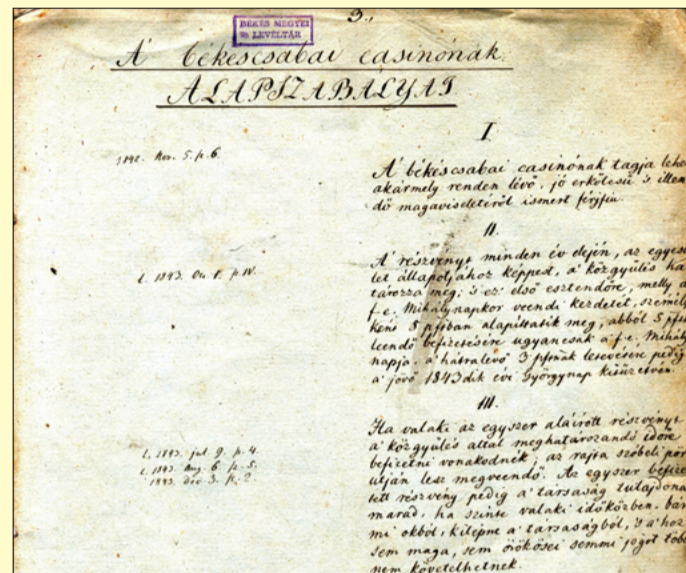 3.,
BÉKÉS MEGYEI
LEVÉLTÁR
A' békéscsabai casinónak
ALAPSZABÁLYAI
I
1842. Nov. 5. p. 6.
A' békéscsabai casinónak tagja lehe
akármely renden lévő, jó erkölcsü 's illen
dő magaviseletéről ismert férjfiu.
II.
A' részvényt minden év elején, az egyesü
let állapotjához képpest, a' közgyülés ha
tározza meg; 's ez első esztendőre, melly a
f. e. Mihálynapkor veendi kezdetét, személy
ként 8 pftban alapíttatik meg, abból 5 pftnak
leendő befizetésére ugyancsak a' f. e. Mihály
napja, a' hátralevő 3 pftnak letevésére pedig
a' jövő 1843dik évi Györgynap kitüzetvén.
l. 1843. p. IV.
III.
Ha valaki az egyszer aláírott részvényt
a' közgyülés által meghatározandó időre
befizetni vonakodnék, az rajta szóbeli pör
utján lesz megveendő. Az egyszer befize
tett részvény pedig a' társaság tulajdona
marad, ha szinte valaki időközben, bár
mi okból, kilépne a' társaságból, 's a' hoz
sem maga, sem örökösei semmi jogot több
nem követelhetnek.
l. 1843. jul. 9. p. 4.
l. 1843. Aug. 6. p. 5.
1843. Dec. 3. p. 2.